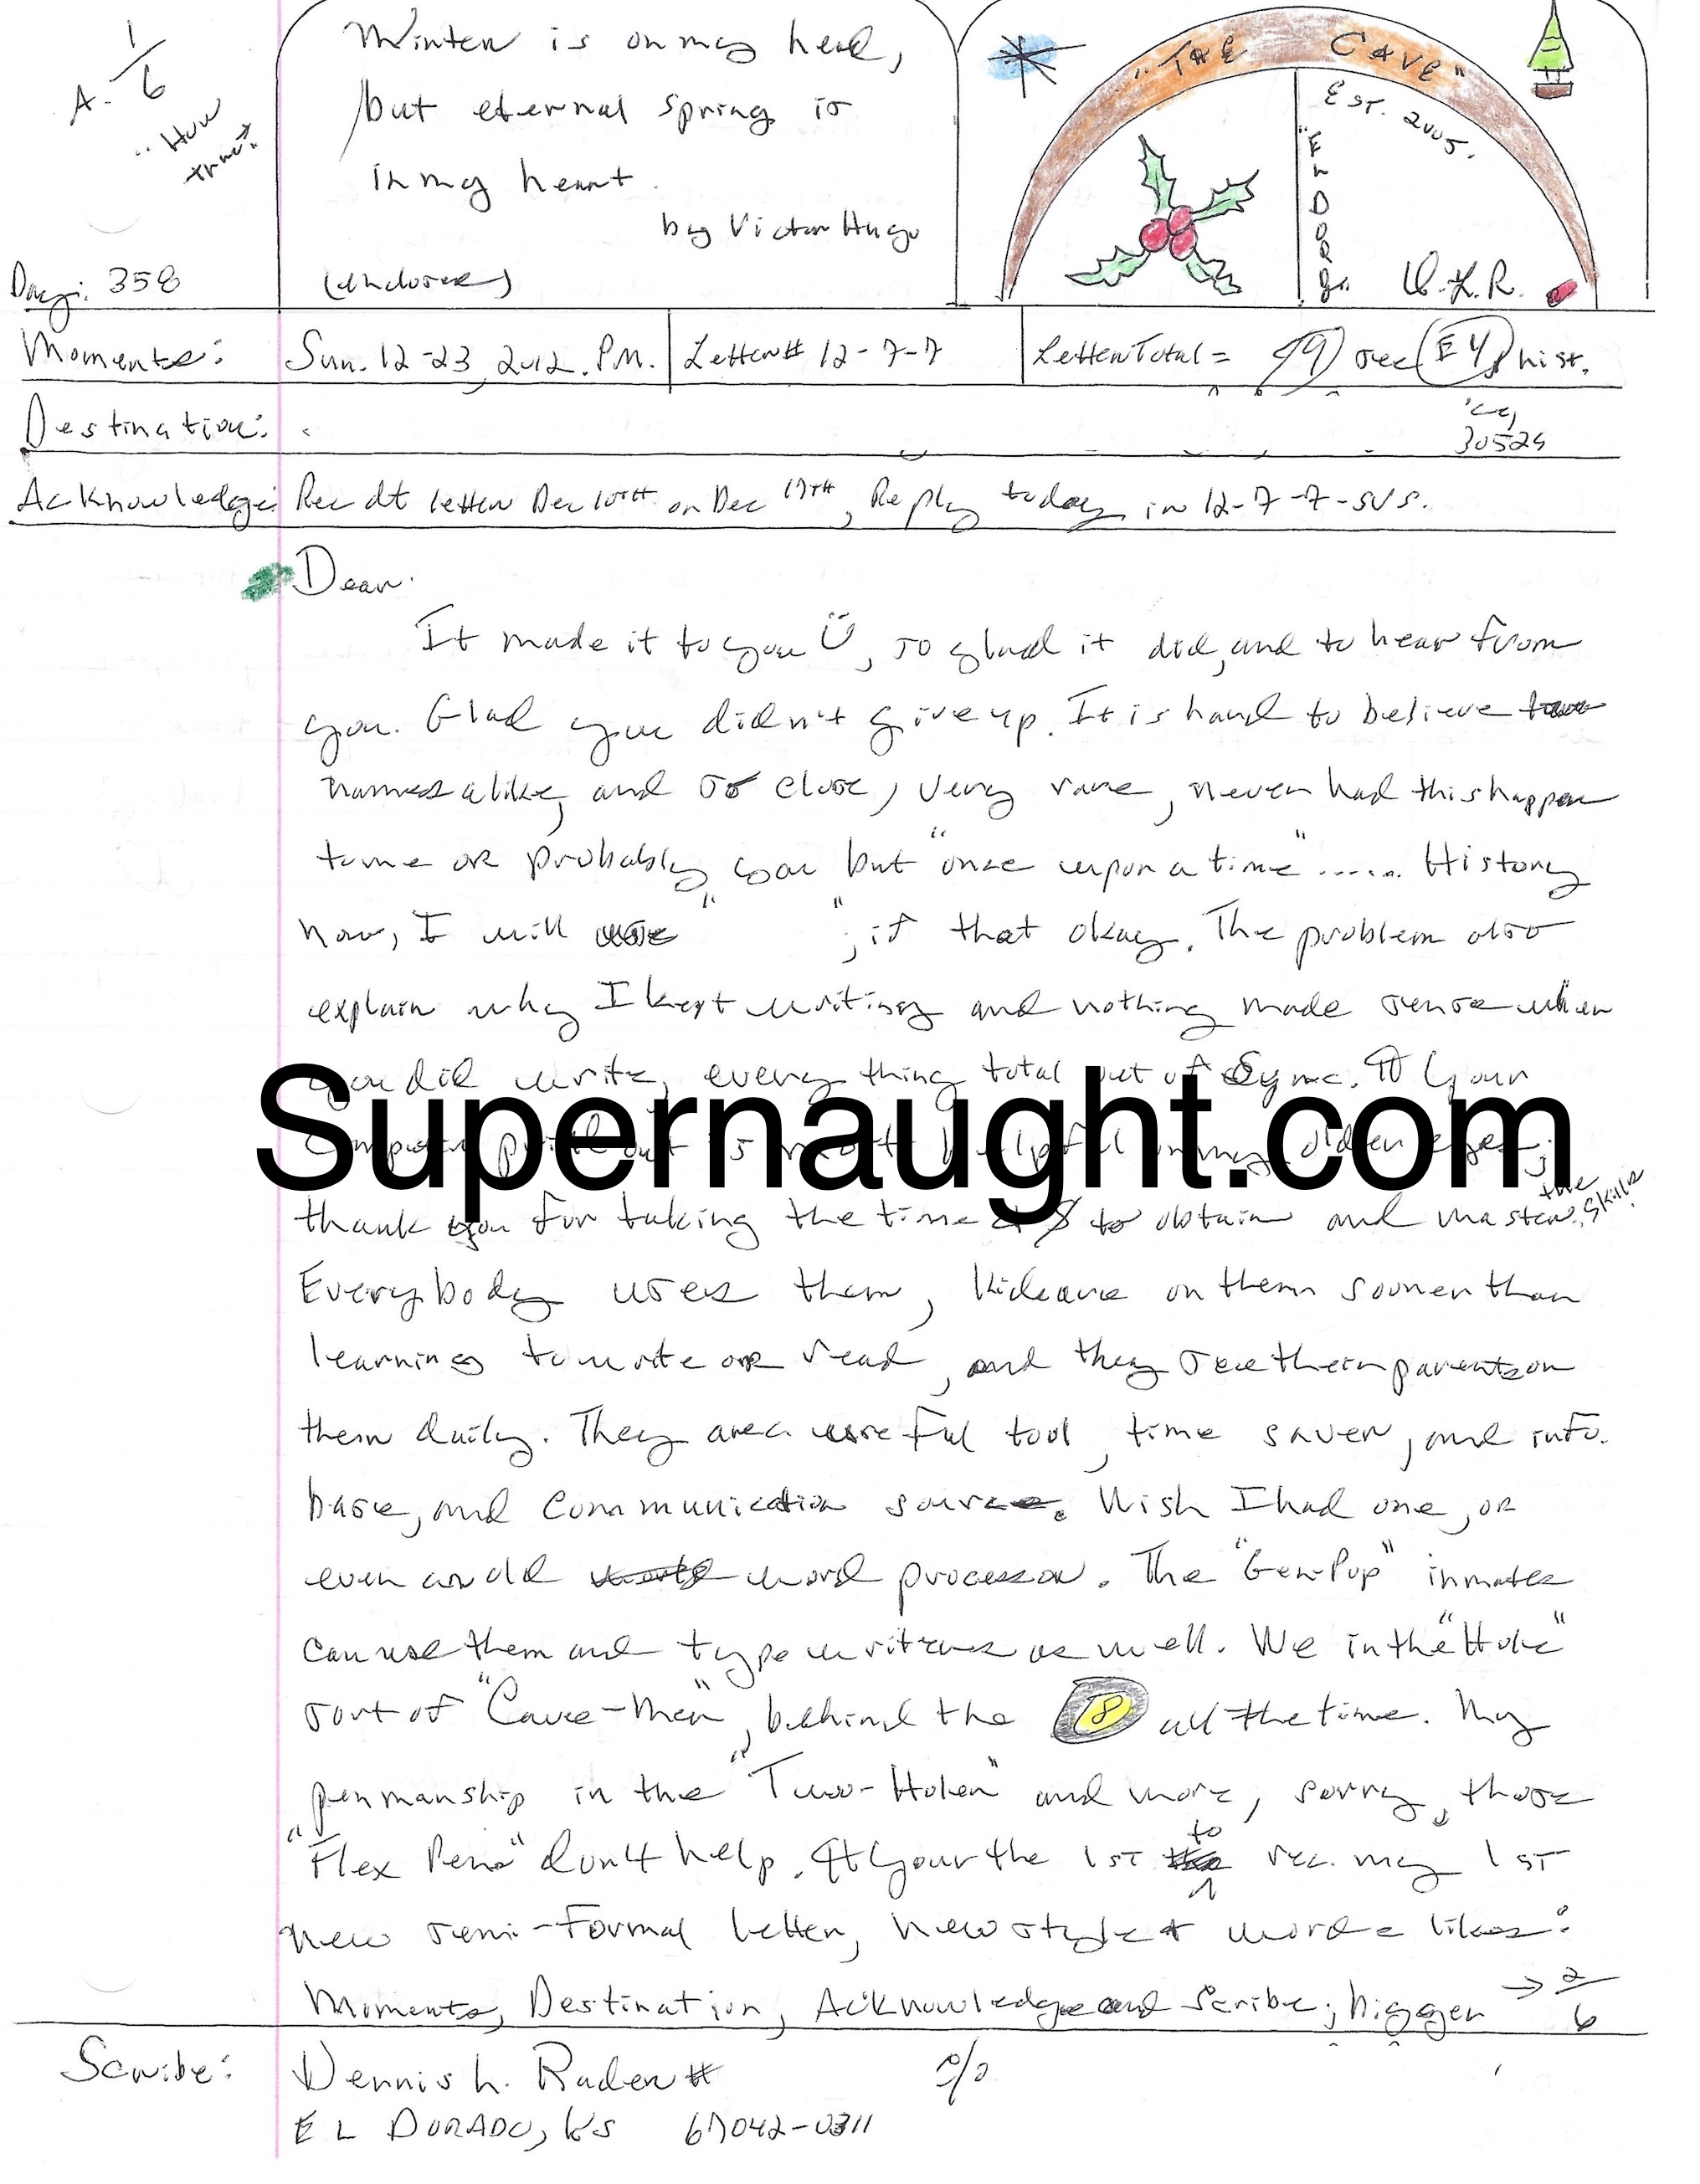 A. 1/6
"How true"
Winter is on my head,
but eternal spring is
in my heart.
by Victor Hugo
(enclosed)
"THE CAVE"
EST. 2005.
"EL DORADO"
D.L.R.
Day: 358
Moments: Sun. 12-23, 2012. P.M. Letter# 12-7-7 Letter Total = hist.
Destination:
30524
Acknowledge: Rec dt letter Dec 10TH on Dec 17TH, Reply today in 12-7-7-SVS.
Dear
It made it to you, so glad it did, and to hear from
you. Glad you didn't give up. It is hard to believe
names alike, and so close, very rare, never had this happen
to me or probably you but "once upon a time"..... History
now, I will use " "; if that okay. The problem also
explain why I kept writing and nothing made sense when
you did write, every thing total out of Sync. Your
thank you for taking the time & $ to obtain and master the skills.
Everybody uses them, kids are on them sooner than
learning to write or read, and they see their parents on
them daily. They are a useful tool, time saver, and info.
base, and communication source. Wish I had one, or
even an old word processor. The "Gen-Pop" inmates
can use them and typewriters as well. We in the "Hole"
sort of "Cave-Men", behind the 8 all the time. My
penmanship in the "Two-Holer" and more, sorry, those
"Flex Pens" don't help. Your the 1ST to rec. my 1ST
new semi-formal letter, new style & words likes:
Moments, Destination, Acknowledge and Scribe; bigger → 2/6
Scribe: Dennis L. Rader # %
EL DORADO, KS 67042-0311
Supernaught.com